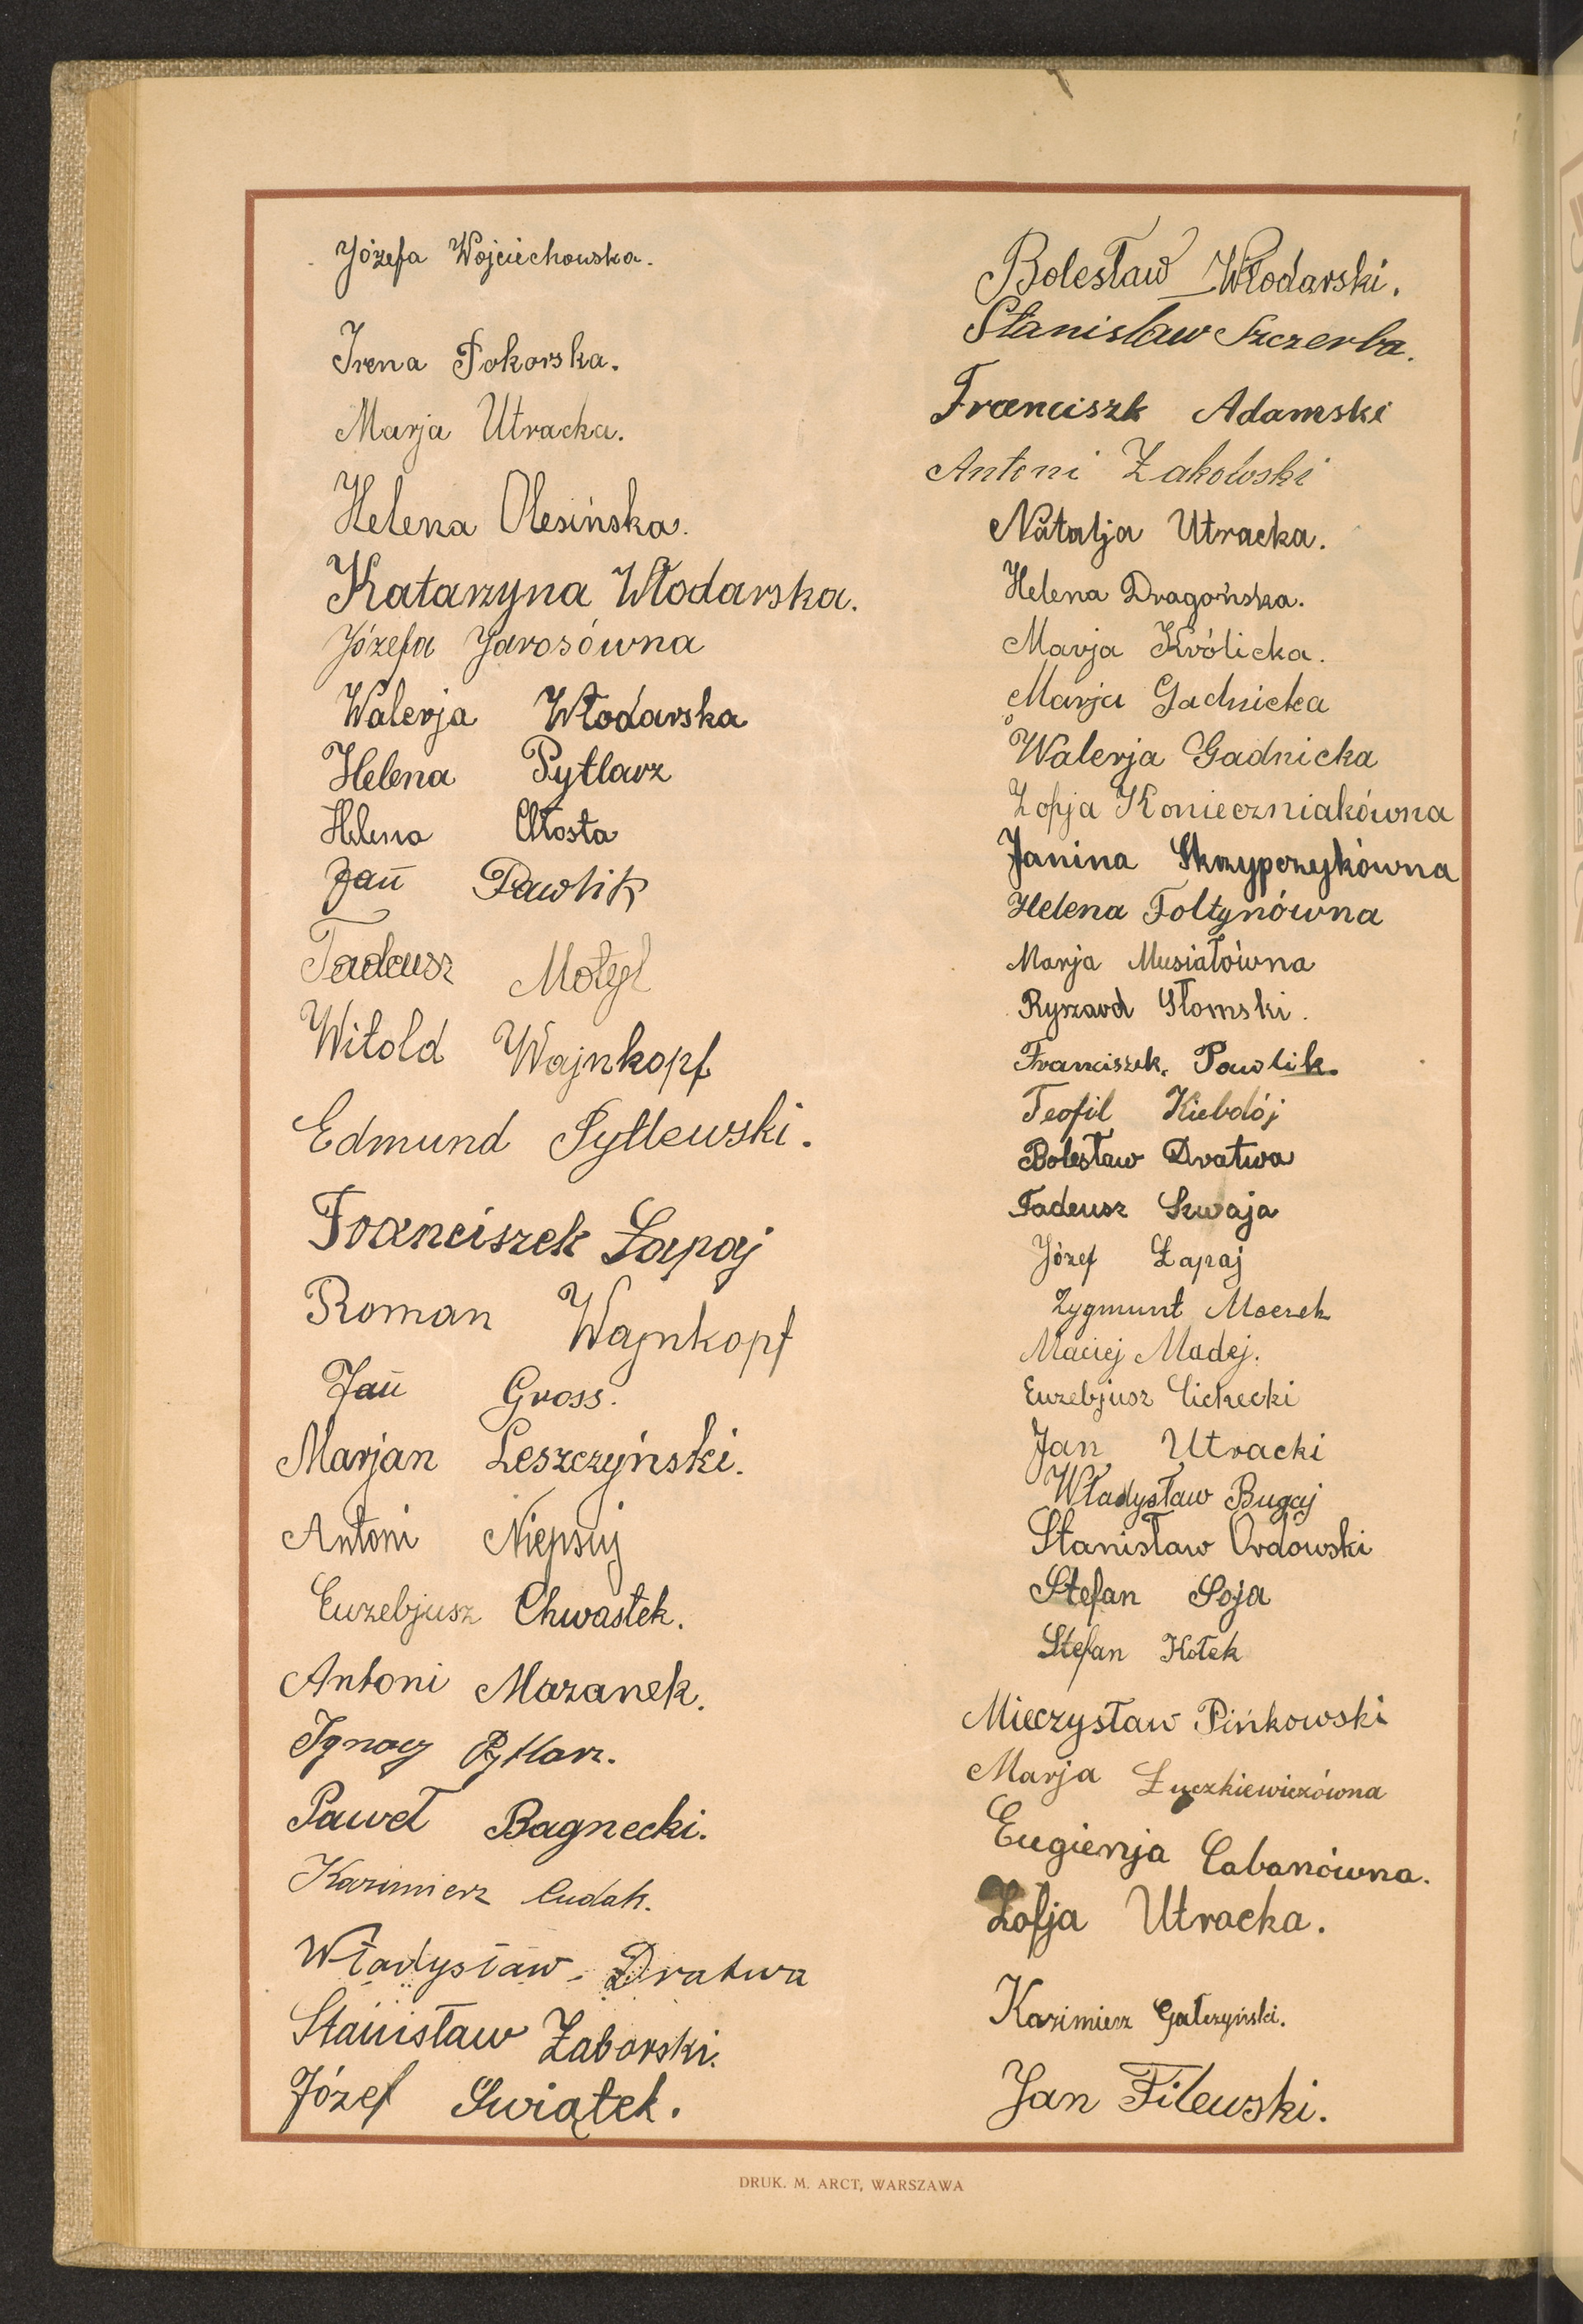 Józefa Wojciechowska.
Irena Pokorska.
Marja Utracka.
Helena Olesińska.
Katarzyna Włodarska.
Józefa Jarosówna
Walerja Włodarska
Helena Pytlarz
Helena Chłosta
Jan Pawlik
Tadeusz Motyl
Witold Wajnkopf
Edmund Pytlewski.
Franciszek Łapaj
Roman Wajnkopf
Jan Gross.
Marjan Leszczyński.
Antoni Niepsuj
Euzebjusz Chwastek.
Antoni Mazanek.
Ignacy Pytlarz.
Paweł Bagnecki.
Kazimierz Cudak.
Władysław Dratwa
Stanisław Zaborski.
Józef Świątek.
Bolesław Włodarski.
Stanisław Szczerba.
Franciszk Adamski
Antoni Żakowski
Natalja Utracka.
Helena Dragońska.
Marja Królicka.
Marja Gadnicka
Walerja Gadnicka
Zofja Konieczniakówna
Janina Skrzypczykówna
Helena Foltynówna
Marja Musiałówna
Ryszard Głomski.
Franciszek Pawlik.
Teofil Kiebdój
Bolesław Dratwa
Tadeusz Szwaja
Józef Łapaj
Zygmunt Maczek
Maciej Madej.
Euzebjusz Cichecki
Jan Utracki
Władysław Bugaj
Stanisław Ordowski
Stefan Soja
Stefan Kołek
Mieczysław Pińkowski
Marja Łuczkiewiczówna
Eugienja Cabanówna.
Zofja Utracka.
Kazimierz Gałczyński.
Jan Filewski.
DRUK. M. ARCT, WARSZAWA